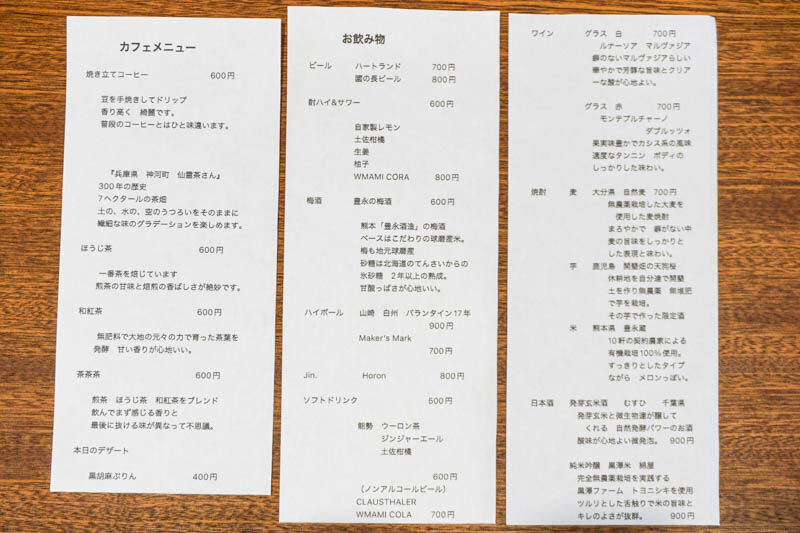 カフェメニュー
焼き立てコーヒー 600円
豆を手焼きしてドリップ
香り高く 綺麗です。
普段のコーヒーとはひと味違います。
『兵庫県 神河町 仙霊茶さん』
300年の歴史
7ヘクタールの茶畑
土の、水の、空のうつろいをそのままに
繊細な味のグラデーションを楽しめます。
ほうじ茶 600円
一番茶を焙じています
煎茶の甘味と焙煎の香ばしさが絶妙です。
和紅茶 600円
無肥料で大地の元々の力で育った茶葉を
発酵 甘い香りが心地いい。
茶茶茶 600円
煎茶 ほうじ茶 和紅茶をブレンド
飲んでまず感じる香りと
最後に抜ける味が異なって不思議。
本日のデザート
黒胡麻ぷりん 400円
お飲み物
ビール ハートランド 700円
國の長ビール 800円
酎ハイ&サワー 600円
自家製レモン
土佐柑橘
生姜
柚子
WMAMI CORA 800円
梅酒 豊永の梅酒 600円
熊本「豊永酒造」の梅酒
ベースはこだわりの球磨産米。
梅も地元球磨産
砂糖は北海道のてんさいからの
氷砂糖 2年以上の熟成。
甘酸っぱさが心地いい。
ハイボール 山崎 白州 バランタイン17年
900円
Maker's Mark
700円
Jin. Horon 800円
ソフトドリンク 600円
能勢 ウーロン茶
ジンジャーエール
土佐柑橘
600円
(ノンアルコールビール)
CLAUSTHALER
WMAMI COLA 700円
ワイン グラス 白 700円
ルナーリア マルヴァジア
癖のないマルヴァジアらしい
華やかで芳醇な旨味とクリア
ーな酸が心地よい。
グラス 赤 700円
モンテプルチャーノ
ダブルッツォ
果実味豊かでカシス系の風味
適度なタンニン ボディの
しっかりした味わい。
焼酎 麦 大分県 自然麦 700円
無農薬栽培した大麦を
使用した麦焼酎
まろやかで 癖がない中
麦の旨味をしっかりと
した表現と味わい。
芋 鹿児島 開墾畑の天狗桜
休耕地を自分達で開墾
土を作り無農薬 無堆肥
で芋を栽培。
その芋で作った限定酒
米 熊本県 豊永蔵
10軒の契約農家による
有機栽培100%使用。
すっきりとしたタイプ
ながら メロンっぽい。
日本酒 発芽玄米酒 むすひ 千葉県
発芽玄米と微生物達が醸して
くれる 自然発酵パワーのお酒
酸味が心地よい微発泡。 900円
純米吟醸 黒澤米 綿屋
完全無農薬栽培を実践する
黒澤ファーム トヨニシキを使用
ツルリとした舌触りで米の旨味と
キレのよさが抜群。 900円